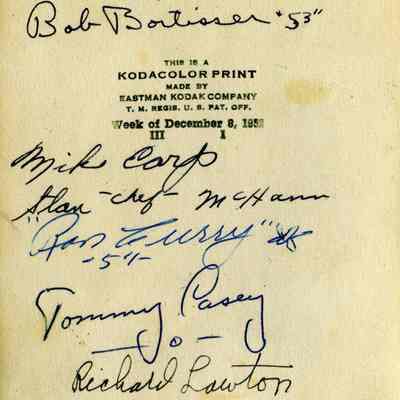 Bob Bortisser "53"
THIS IS A
KODACOLOR PRINT
MADE BY
EASTMAN KODAK COMPANY
T. M. REGIS. U. S. PAT. OFF.
Week of December 8, 1952
III 1
Mike Carp
"Stan -chef- McHann
Ron Curry"
-51-
Tommy Casey
-o-
Richard Lawton